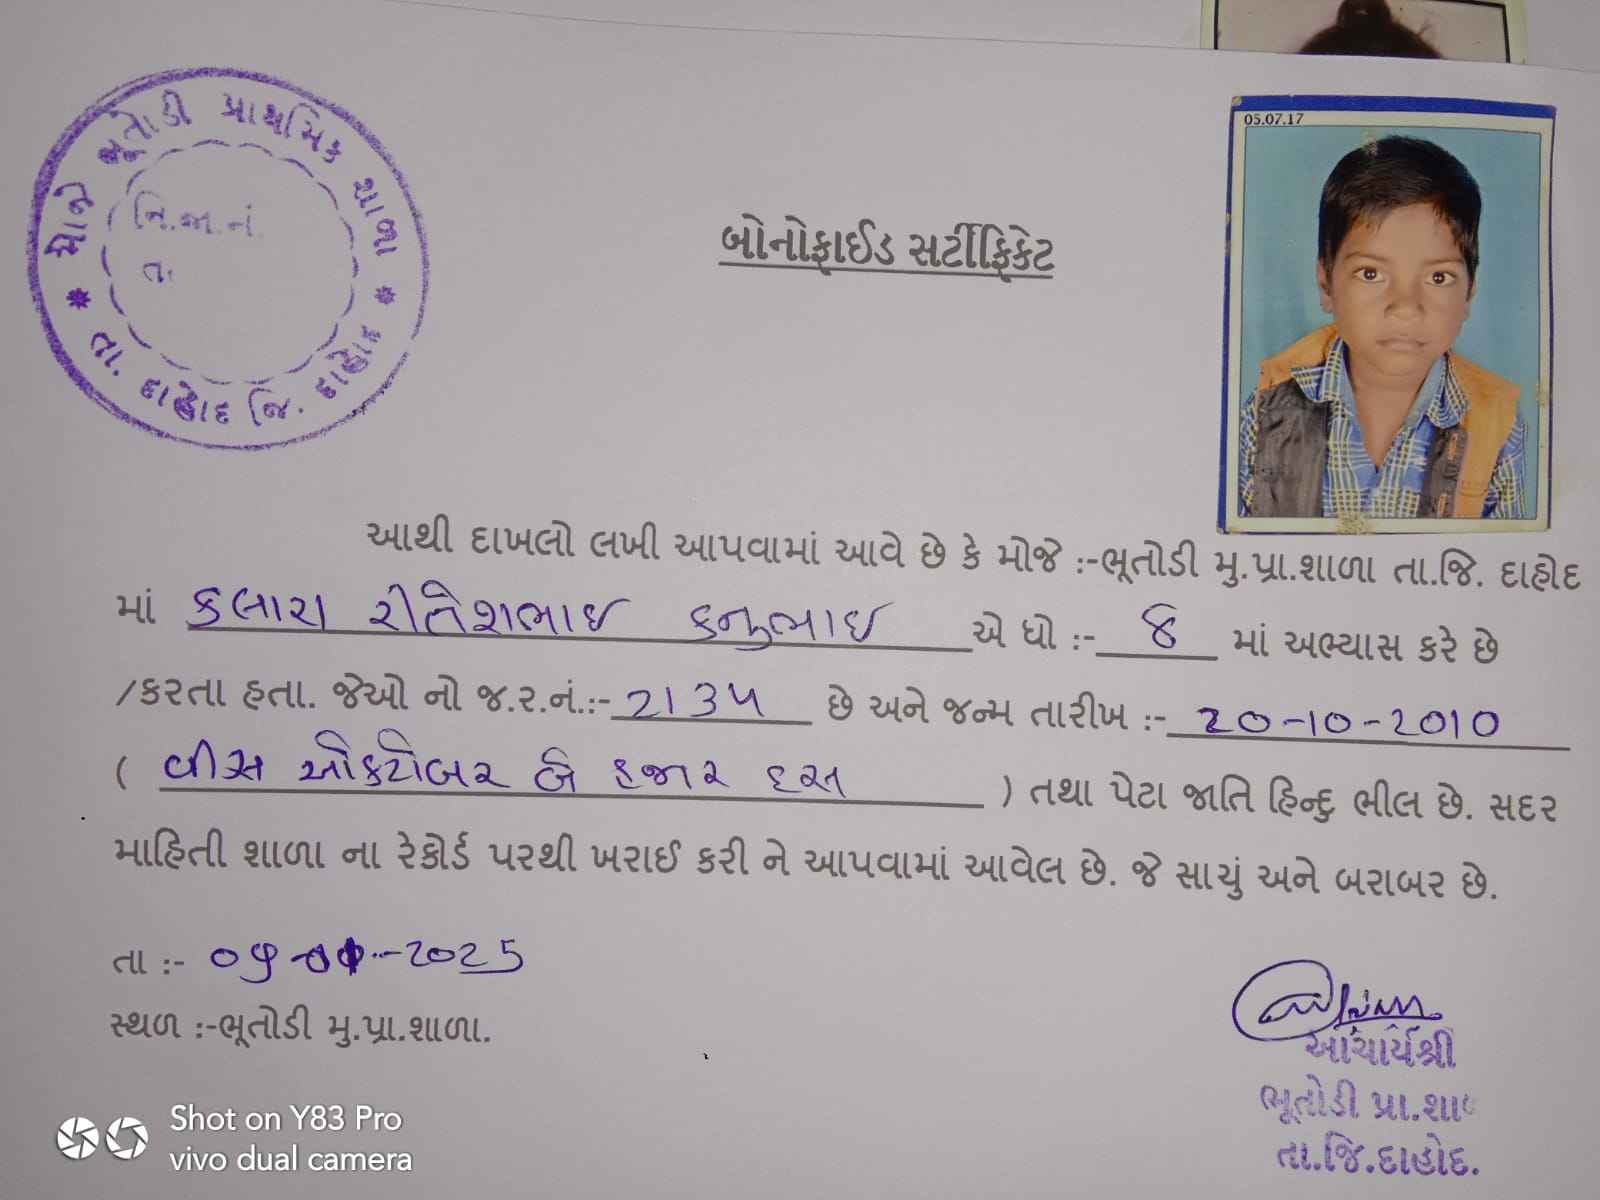 મોજે ભૂતોડી પ્રાથમિક શાળા
નિ.જા.નં.
તા.
* તા. દાહોદ જિ. દાહોદ *
05.07.17
બોનોફાઈડ સર્ટીફિકેટ
આથી દાખલો લખી આપવામાં આવે છે કે મોજે :-ભૂતોડી મુ.પ્રા.શાળા તા.જિ. દાહોદ
માં કલારા રીતેશભાઇ કનુભાઇ એ ધો :- 8 માં અભ્યાસ કરે છે
/કરતા હતા. જેઓ નો જ.ર.નં.:- 2134 છે અને જન્મ તારીખ :- 20-10-2010
( વીસ ઓક્ટોબર બે હજાર દસ ) તથા પેટા જાતિ હિન્દુ ભીલ છે. સદર
માહિતી શાળા ના રેકોર્ડ પરથી ખરાઈ કરી ને આપવામાં આવેલ છે. જે સાચું અને બરાબર છે.
તા :- -2025
સ્થળ :-ભૂતોડી મુ.પ્રા.શાળા.
આચાર્યશ્રી
ભૂતોડી પ્રા.શાળ
તા.જિ.દાહોદ.
Shot on Y83 Pro
vivo dual camera